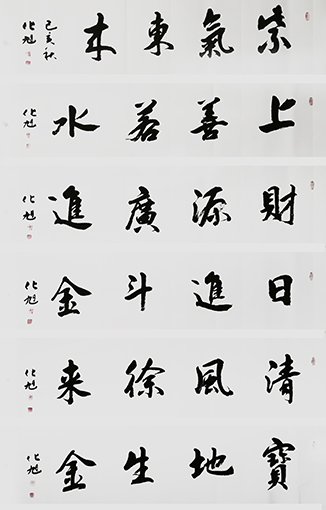 紫氣東来 己亥秋 化旭
上善若水 化旭
財源廣進 化旭
日進斗金 化旭
清風徐来 化旭
寶地生金 化旭